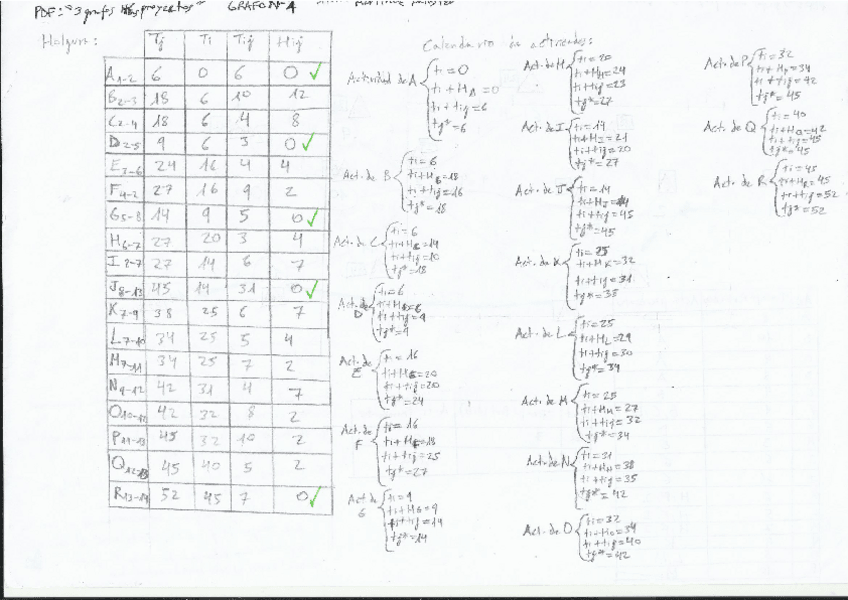 PDF: "3 grafos proyectos" GRAFO Nº 4
Holgura:
Tj Ti Tij Hij
A1-2 6 0 6 0 ✓
B2-3 18 6 10 12
C2-4 18 6 4 8
D2-5 9 6 3 0 ✓
E3-6 24 16 4 4
F4-7 27 16 9 2
G5-8 14 9 5 0 ✓
H6-7 27 20 3 4
I8-7 27 14 6 7
J8-13 45 14 31 0 ✓
K7-9 38 25 6 7
L7-10 34 25 5 4
M7-11 34 25 7 2
N9-12 42 31 4 7
O10-12 42 32 8 2
P11-13 45 32 10 2
Q12-13 45 40 5 2
R13-14 52 45 7 0 ✓
Calendario de actividades:
Actividad de A
ti=0
ti+HA=0
ti+tij=6
tj*=6
Act. de B
ti=6
ti+HB=18
ti+tij=16
tj*=18
Act. de C
ti=6
ti+HC=14
ti+tij=10
tj*=18
Act. de D
ti=6
ti+HD=6
ti+tij=9
tj*=9
Act. de E
ti=16
ti+HE=20
ti+tij=20
tj*=24
Act. de F
ti=16
ti+HF=18
ti+tij=25
tj*=27
Act. de G
ti=9
ti+HG=9
ti+tij=14
tj*=14
Act. de H
ti=20
ti+HH=24
ti+tij=23
tj*=27
Act. de I
ti=14
ti+HI=21
ti+tij=20
tj*=27
Act. de J
ti=14
ti+HJ=14
ti+tij=45
tj*=45
Act. de K
ti=25
ti+HK=32
ti+tij=31
tj*=38
Act. de L
ti=25
ti+HL=29
ti+tij=30
tj*=34
Act. de M
ti=25
ti+HM=27
ti+tij=32
tj*=34
Act. de N
ti=31
ti+HN=38
ti+tij=35
tj*=42
Act. de O
ti=32
ti+HO=34
ti+tij=40
tj*=42
Act. de P
ti=32
ti+HP=34
ti+tij=42
tj*=45
Act. de Q
ti=40
ti+HQ=42
ti+tij=45
tj*=45
Act. de R
ti=45
ti+HR=45
ti+tij=52
tj*=52